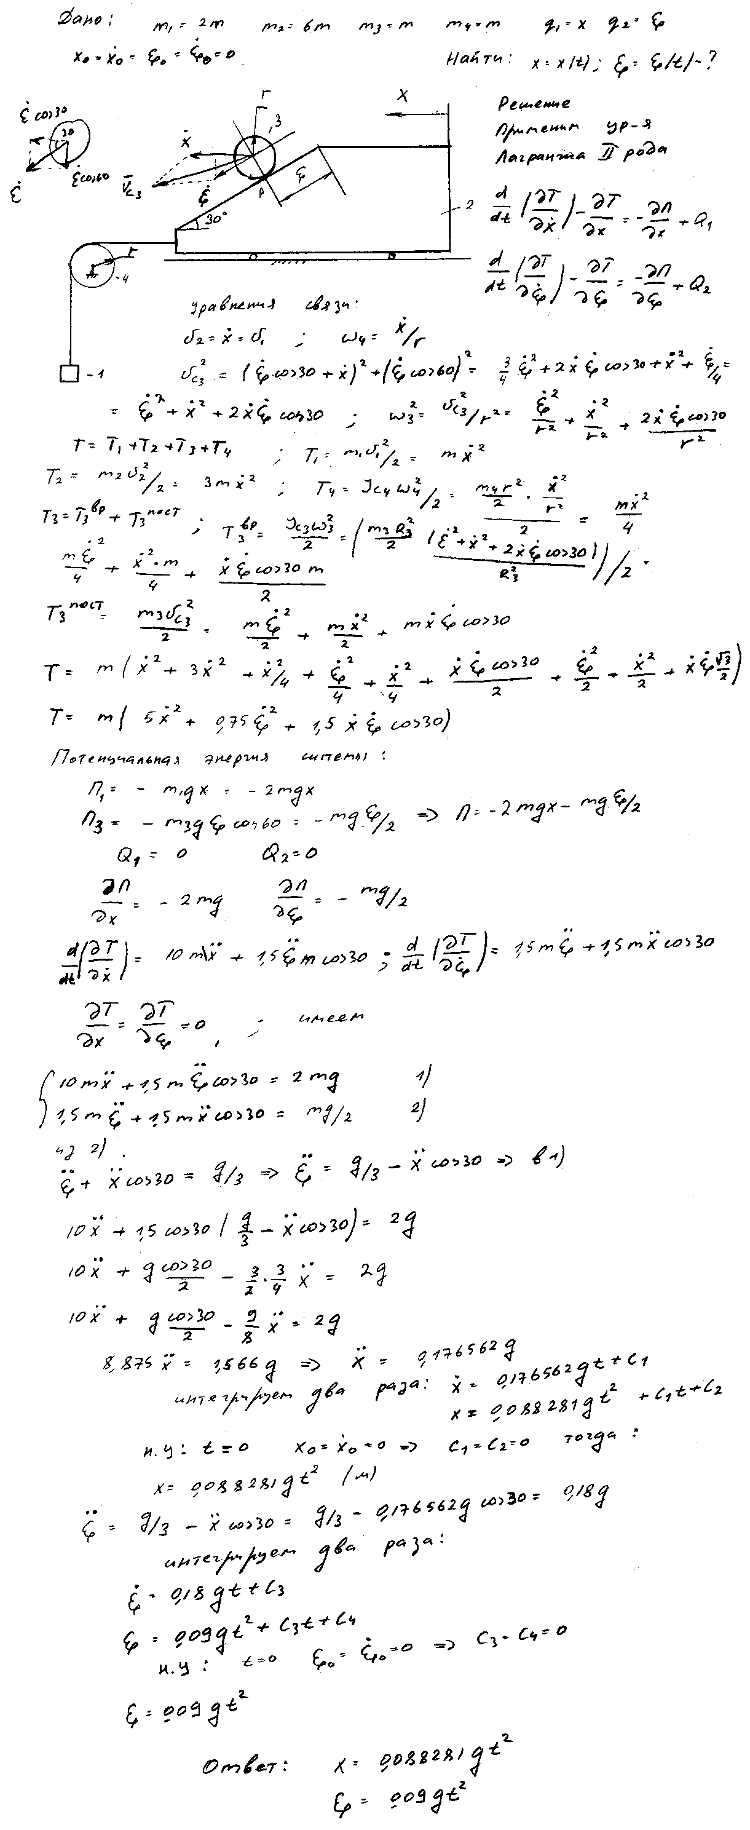 Дано: m₁ = 2m m₂ = 6m m₃ = m m₄ = m q₁ = x q₂ = ξ
x₀ = ẋ₀ = ξ₀ = ξ̇₀ = 0 Найти: x = x(t); ξ = ξ(t) - ?
ξ̇ cos30
30
ξ̇
ξ̇ cos60
r
3
ẋ
V̄c₃
ξ̇
P
ξ
30°
x
2
r
4
1
Решение
Применим ур-я
Лагранжа II рода
d/dt (∂T/∂ẋ) - ∂T/∂x = -∂П/∂x + Q₁
d/dt (∂T/∂ξ̇) - ∂T/∂ξ = -∂П/∂ξ + Q₂
Уравнения связи:
υ₂ = ẋ = υ₁ ; ω₄ = ẋ/r
υc₃² = (ξ̇ cos30 + ẋ)² + (ξ̇ cos60)² = 3/4 ξ̇² + 2ẋ ξ̇ cos30 + ẋ² + ξ̇²/4 =
= ξ̇² + ẋ² + 2ẋξ̇ cos30 ; ω₃² = υc₃²/r² = ξ̇²/r² + ẋ²/r² + 2ẋ ξ̇ cos30/r²
T = T₁ + T₂ + T₃ + T₄ ; T₁ = m₁υ₁²/2 = mẋ²
T₂ = m₂υ₂²/2 = 3mẋ² ; T₄ = Jc₄ω₄²/2 = (m₄r²/2 · ẋ²/r²)/2 = mẋ²/4
T₃ = T₃ᵇᵖ + T₃ᵖᵒᶜᵀ ; T₃ᵇᵖ = Jc₃ω₃²/2 = (m₃R₃²/2 (ξ̇² + ẋ² + 2ẋξ̇ cos30)/R₃²)/2 =
mξ̇²/4 + ẋ²·m/4 + ẋ ξ̇ cos30 m/2
T₃ пост = m₃υc₃²/2 = mξ̇²/2 + mẋ²/2 + mẋ ξ̇ cos30
T = m(ẋ² + 3ẋ² + ẋ²/4 + ξ̇²/4 + ẋ²/4 + ẋ ξ̇ cos30/2 + ξ̇²/2 + ẋ²/2 + ẋξ̇ √3/2)
T = m(5ẋ² + 0,75ξ̇² + 1,5 ẋ ξ̇ cos30)
Потенциальная энергия системы:
П₁ = - m₁gx = -2mgx
П₃ = - m₃g ξ cos60 = -mg ξ/2 => П = -2mgx - mg ξ/2
Q₁ = 0 Q₂ = 0
∂П/∂x = -2mg ∂П/∂ξ = -mg/2
d/dt (∂T/∂ẋ) = 10mẍ + 1,5ξ̈ m cos30 ; d/dt (∂T/∂ξ̇) = 1,5mξ̈ + 1,5mẍ cos30
∂T/∂x = ∂T/∂ξ = 0, ; имеем
{ 10mẍ + 1,5mξ̈ cos30 = 2mg 1)
1,5mξ̈ + 1,5mẍ cos30 = mg/2 2)
из 2).
ξ̈ + ẍ cos30 = g/3 => ξ̈ = g/3 - ẍ cos30 => в 1)
10ẍ + 1,5 cos30 (g/3 - ẍ cos30) = 2g
10ẍ + g cos30/2 - 3/2 · 3/4 ẍ = 2g
10ẍ + g cos30/2 - 9/8 ẍ = 2g
8,875ẍ = 1,566g => ẍ = 0,176562g
интегрируем два раза: ẋ = 0,176562gt + C₁
x = 0,088281gt² + C₁t + C₂
н.у: t = 0 x₀ = ẋ₀ = 0 => C₁ = C₂ = 0 тогда:
x = 0,088281gt² (м)
ξ̈ = g/3 - ẍ cos30 = g/3 - 0,176562g cos30 = 0,18g
интегрируем два раза:
ξ̇ = 0,18gt + C₃
ξ = 0,09gt² + C₃t + C₄
н.у: t = 0 ξ₀ = ξ̇₀ = 0 => C₃ = C₄ = 0
ξ = 0,09gt²
Ответ: x = 0,088281gt²
ξ = 0,09gt²